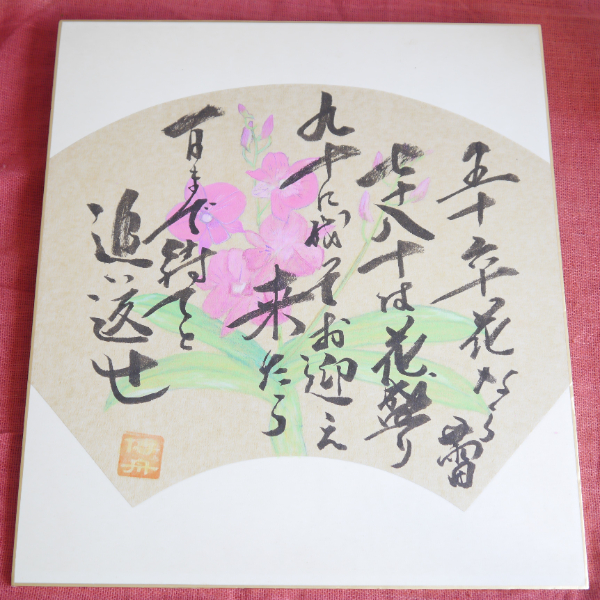 五十六十花なら蕾
七十八十は花盛り
九十に成てお迎え
来たら
百まで待てと
追い返せ